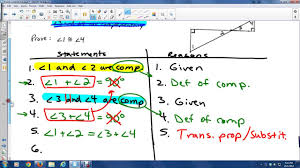 Prove: ∠1 ≅ ∠4
Statements
Reasons
1. ∠1 and ∠2 are comp
1. Given
2. ∠1 + ∠2 = 90°
2. Def of comp.
3. ∠3 and ∠4 are comp
3. Given
4. ∠3 + ∠4 = 90°
4. Def of comp.
5. ∠1 + ∠2 = ∠3 + ∠4
5. Trans. prop/substit.
6.